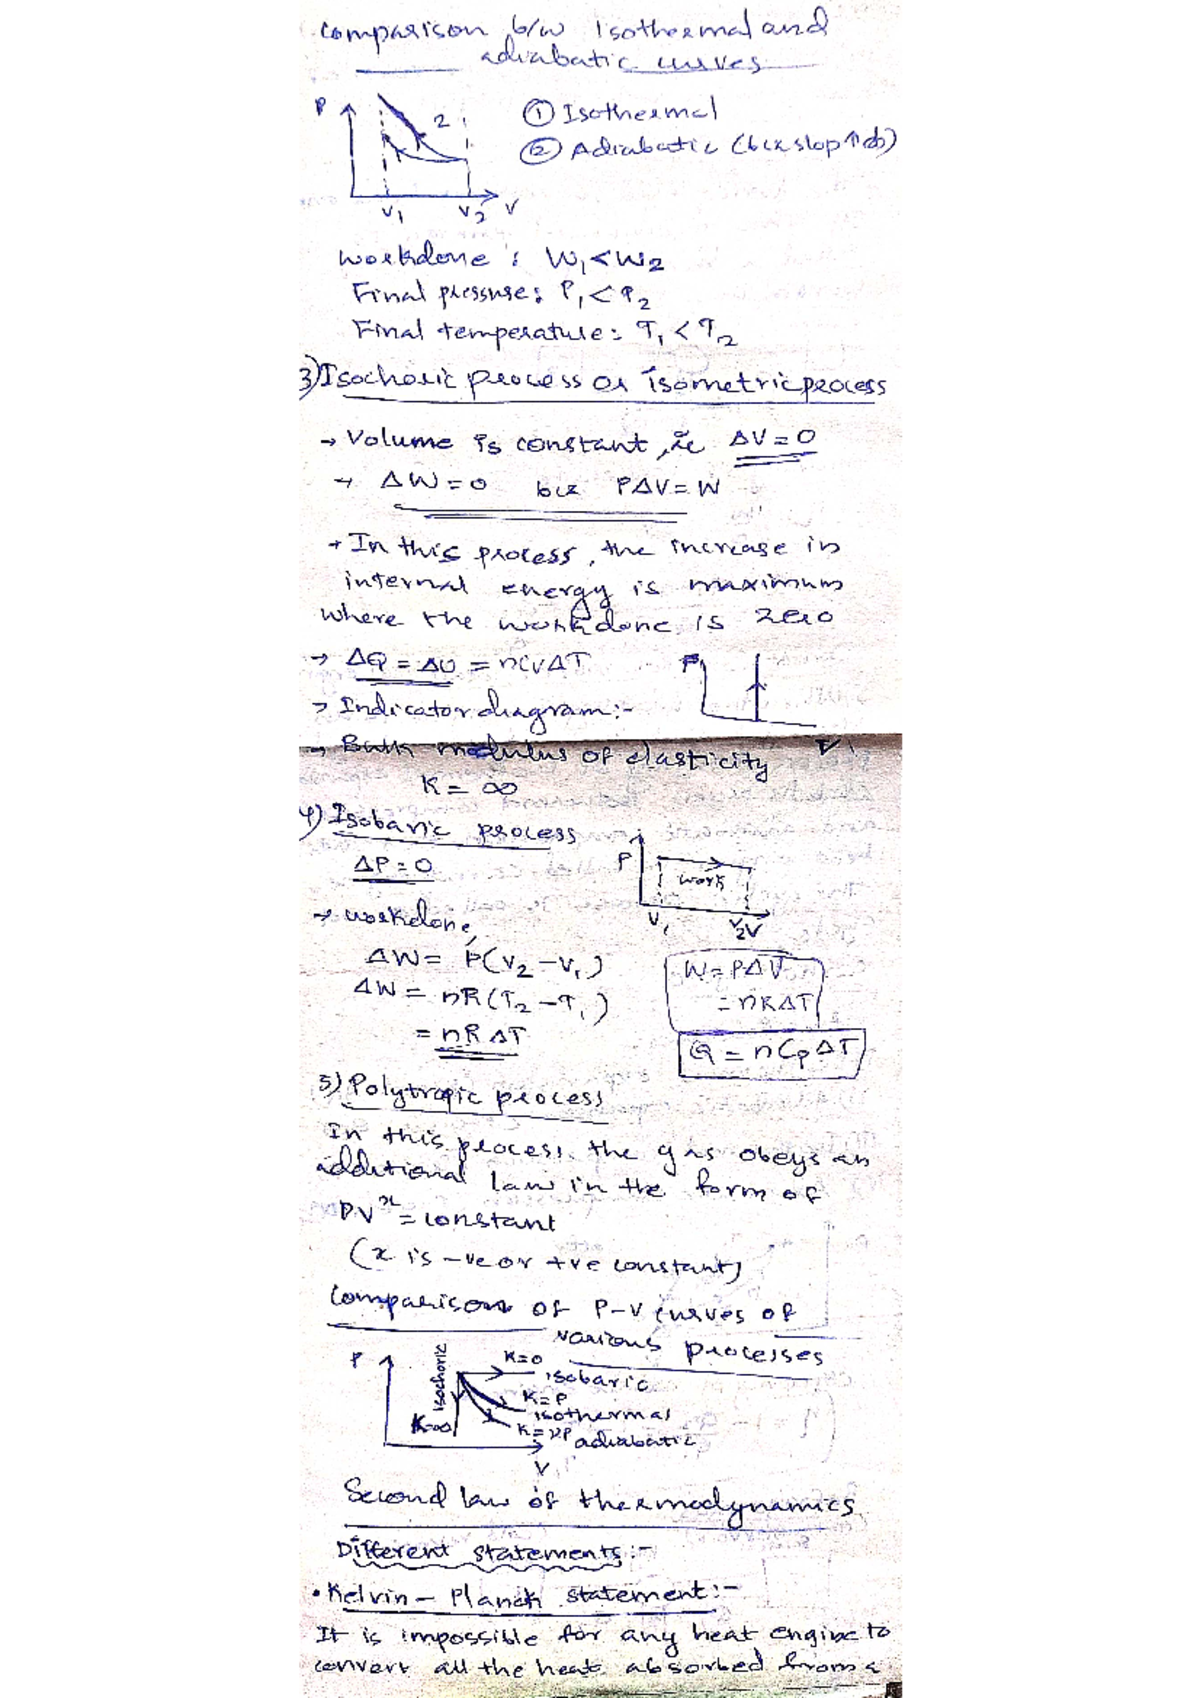 Comparison b/w Isothermal and
adiabatic curves
P
2
① Isothermal
② Adiabatic (bcz slop↑
V1 V2 V
workdone : W1 < W2
Final pressure: P1 < P2
Final temperature: T1 < T2
3) Isochoric process or isometric process
→ Volume is constant, ie ΔV = 0
→ ΔW = 0 bcz PΔV = W
→ In this process, the increase in
internal energy is maximum
where the workdone is zero
→ ΔQ = ΔU = nCvΔT
P
→ Indicator diagram:-
V
→ Bulk modulus of elasticity
K = ∞
4) Isobaric process
ΔP = 0
P
work
V1 V2 V
→ workdone,
ΔW = P(V2 - V1)
ΔW = nR(T2 - T1)
= nRΔT
W = PΔV
= nRΔT
Q = nCpΔT
5) Polytropic process
In this process, the gas obeys an
additional law in the form of
PV^x = constant
(x is -ve or +ve constant)
Comparison of P-V curves of
various processes
P
isochoric
K=0
isobaric
K=P
isothermal
K=∞
K=γP adiabatic
V
Second law of thermodynamics
Different statements:-
• Kelvin - Planck statement:-
It is impossible for any heat engine to
convert all the heat absorbed from a